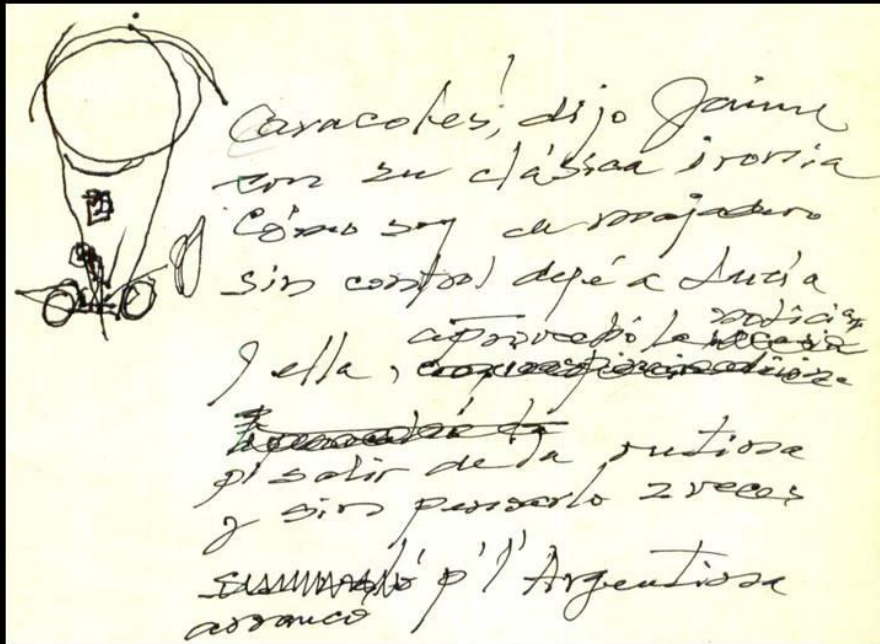 Caracoles, dijo Jaime
con su clássica ironia
Cómo soy de majadero
sin control dejé a Lucía
aprovechó la noticia
y ella,
p' salir de la rutina
y sin pensarlo 2 veces
p' l' Argentina
arrancó